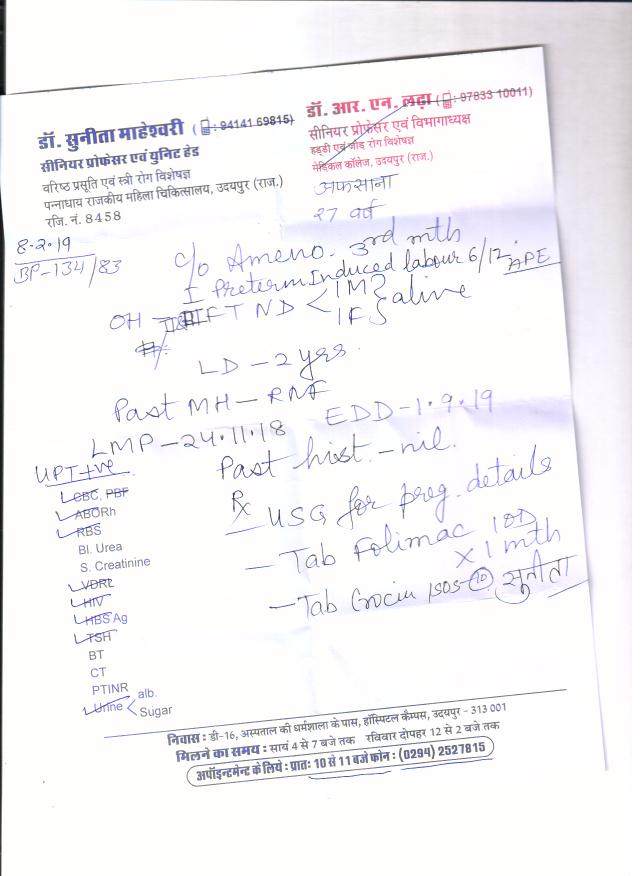 डॉ. सुनीता माहेश्वरी ( : 94141 69815)
सीनियर प्रोफेसर एवं युनिट हेड
वरिष्ठ प्रसूति एवं स्त्री रोग विशेषज्ञ
पन्नाधाय राजकीय महिला चिकित्सालय, उदयपुर (राज.)
रजि. नं. 8458
डॉ. आर. एन. लढ़ा ( : 97833 10011)
सीनियर प्रोफेसर एवं विभागाध्यक्ष
हड्डी एवं जोड़ रोग विशेषज्ञ
मेडिकल कॉलेज, उदयपुर (राज.)
अफसाना
27 वर्ष
8-2-19
BP-134/83
c/o Ameno. 3rd mth
I Preterm Induced labour 6/12 APE
OH FTND < 1M 1F } alive
LD - 2 yrs
Past MH - RNF
LMP - 24.11.18 EDD - 1.9.19
UPT +ve
Past hist. - nil.
CBC, PBF
ABORh
RBS
Bl. Urea
S. Creatinine
VDRL
HIV
HBS Ag
TSH
BT
CT
PTINR
Urine < alb.
Sugar
Rx USG for preg. details
- Tab Folimac 1OD
x 1 mth
- Tab Crocin 1SOS - 10 सुनीता
निवास : डी-16, अस्पताल की धर्मशाला के पास, हॉस्पिटल कैम्पस, उदयपुर - 313 001
मिलने का समय : सायं 4 से 7 बजे तक रविवार दोपहर 12 से 2 बजे तक
अपॉइन्टमेन्ट के लिये : प्रातः 10 से 11 बजे फोन : (0294) 2527815